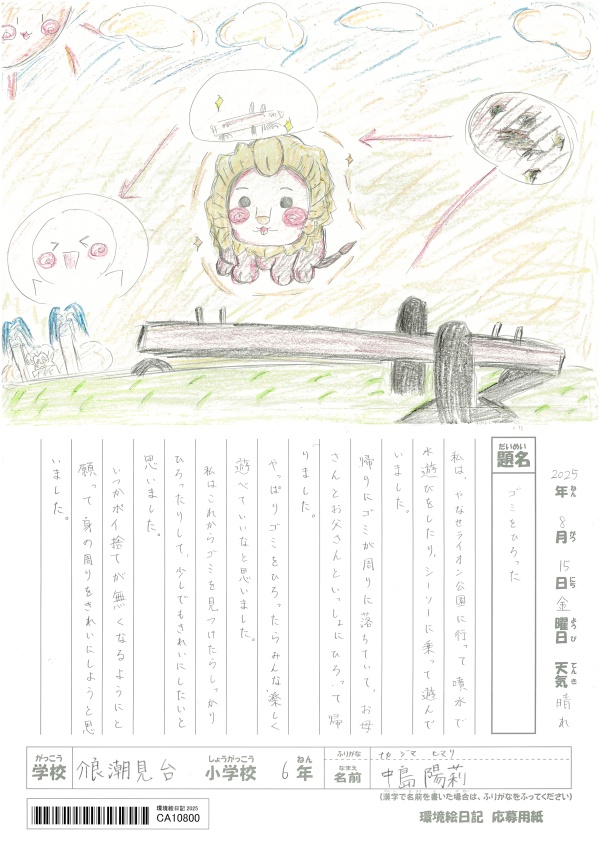 2025年 8月 15日 金曜日 天気 晴れ
ねん がつ にち ようび てんき
だいめい
題名
ゴミをひろった
私は、やなせライオン公園に行って噴水で
水遊びをしたり、シーソーに乗って遊んで
いました。
帰りにゴミが周りに落ちていて、お母
さんとお父さんといっしょにひろって帰
りました。
やっぱりゴミをひろったらみんな楽しく
遊べていいなと思いました。
私はこれからゴミを見つけたらしっかり
ひろったりして、少しでもきれいにしたいと
思いました。
いつかポイ捨てが無くなるようにと
願って身の周りをきれいにしようと思
いました。
がっこう しょうがっこう ねん ふりがな ナカジマ ヒマリ
学校 潮見台 小学校 6年 なまえ 名前 中島 陽莉
(漢字で名前を書いた場合は、ふりがなをふってください)
環境絵日記 2025
CA10800
環境絵日記 応募用紙